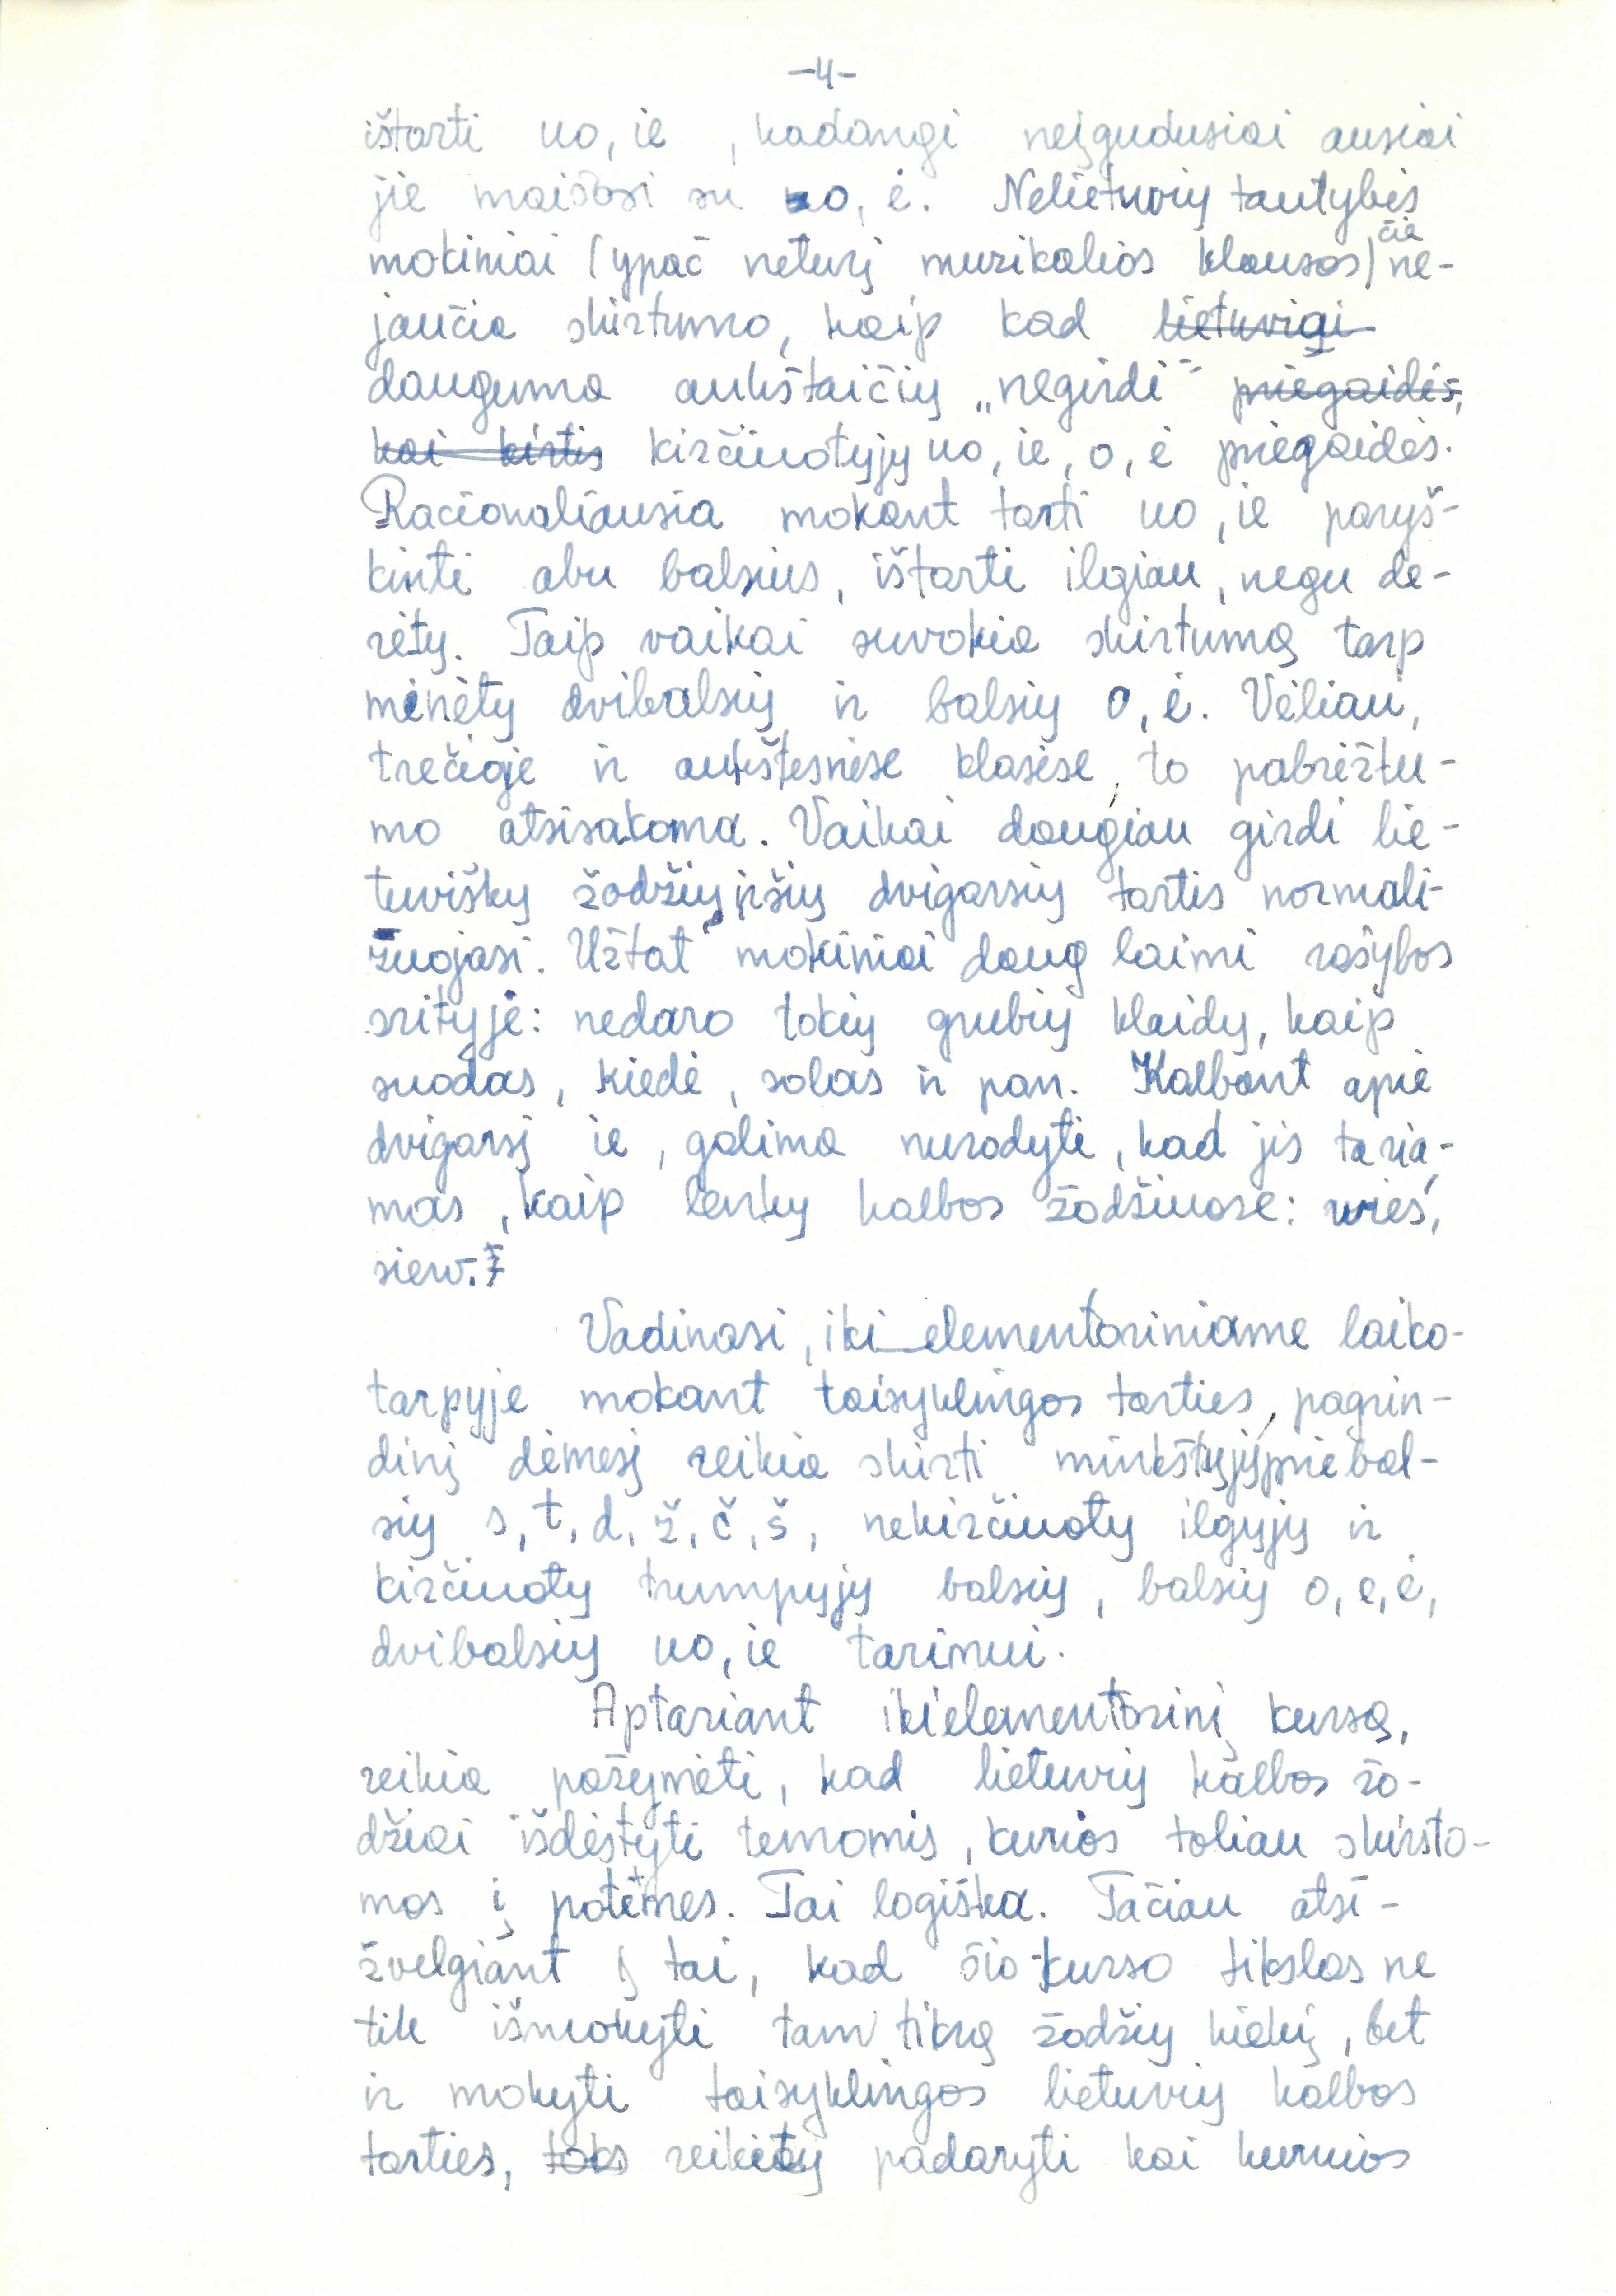 -4-
ištarti uo, ie, kadangi neįgudusiai ausiai
jie maišosi su o, ė. Nelietuvių tautybės
mokiniai (ypač neturį muzikalios klausos) čia ne-
jaučia skirtumo, kaip kad lietuviai
dauguma aukštaičių „negirdi" priegaidės,
kai kirtis kirčiuotųjų uo, ie, o, ė priegaidės.
Racionaliausia mokant tarti uo, ie paryš-
kinti abu balsius, ištarti ilgiau, negu de-
rėtų. Taip vaikai suvokia skirtumą tarp
minėtų dvibalsių ir balsių o, ė. Vėliau,
trečioje ir aukštesnėse klasėse, to pabrėžtu-
mo atsisakoma. Vaikai daugiau girdi lie-
tuviškų žodžių, ir šių dvigarsių tartis normali-
zuojasi. Užtat mokiniai daug laimi rašybos
srityje: nedaro tokių grubių klaidų, kaip
suodas, kiedė, solas ir pan. Kalbant apie
dvigarsį ie, galima nurodyti, kad jis taria-
mas, kaip lenkų kalbos žodžiuose: wieś,
siew.
Vadinasi, iki elementoriniame laiko-
tarpyje mokant taisyklingos tarties, pagrin-
dinį dėmesį reikia skirti minkštųjų priebal-
sių s, t, d, ž, č, š, nekirčiuotų ilgųjų ir
kirčiuotų trumpųjų balsių, balsių o, e, ė,
dvibalsių uo, ie tarimui.
Aptariant ikielementorinį kursą,
reikia pažymėti, kad lietuvių kalbos žo-
džiai išdėstyti temomis, kurios toliau skirsto-
mos į potemes. Tai logiška. Tačiau atsi-
žvelgiant į tai, kad šio kurso tikslas ne
tik išmokyti tam tikrą žodžių kiekį, bet
ir mokyti taisyklingos lietuvių kalbos
tarties, toks reikėtų padaryti kai kurios